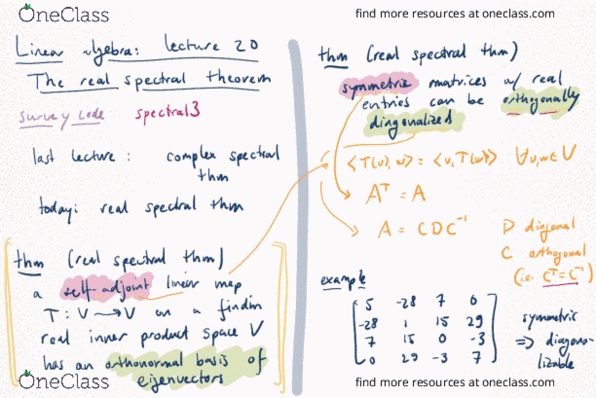 OneClass
find more resources at oneclass.com
Linear algebra: lecture 20
The real spectral theorem
survey code spectral3
last lecture: complex spectral
thm
today: real spectral thm
thm (real spectral thm)
a self-adjoint linear map
T: V → V on a findim
real inner product space V
has an orthonormal basis of
eigenvectors
thm (real spectral thm)
symmetric matrices w/ real
entries can be orthogonally
diagonalized
⟨T(v), w⟩ = ⟨v, T(w)⟩ ∀v,w∈V
Aᵀ = A
A = CDC⁻¹
D diagonal
C orthogonal
(i.e. Cᵀ=C⁻¹)
example
5 -28 7 0
-28 1 15 29
7 15 0 -3
0 29 -3 7
symmetric
⇒ diagona-
lizable
OneClass
find more resources at oneclass.com